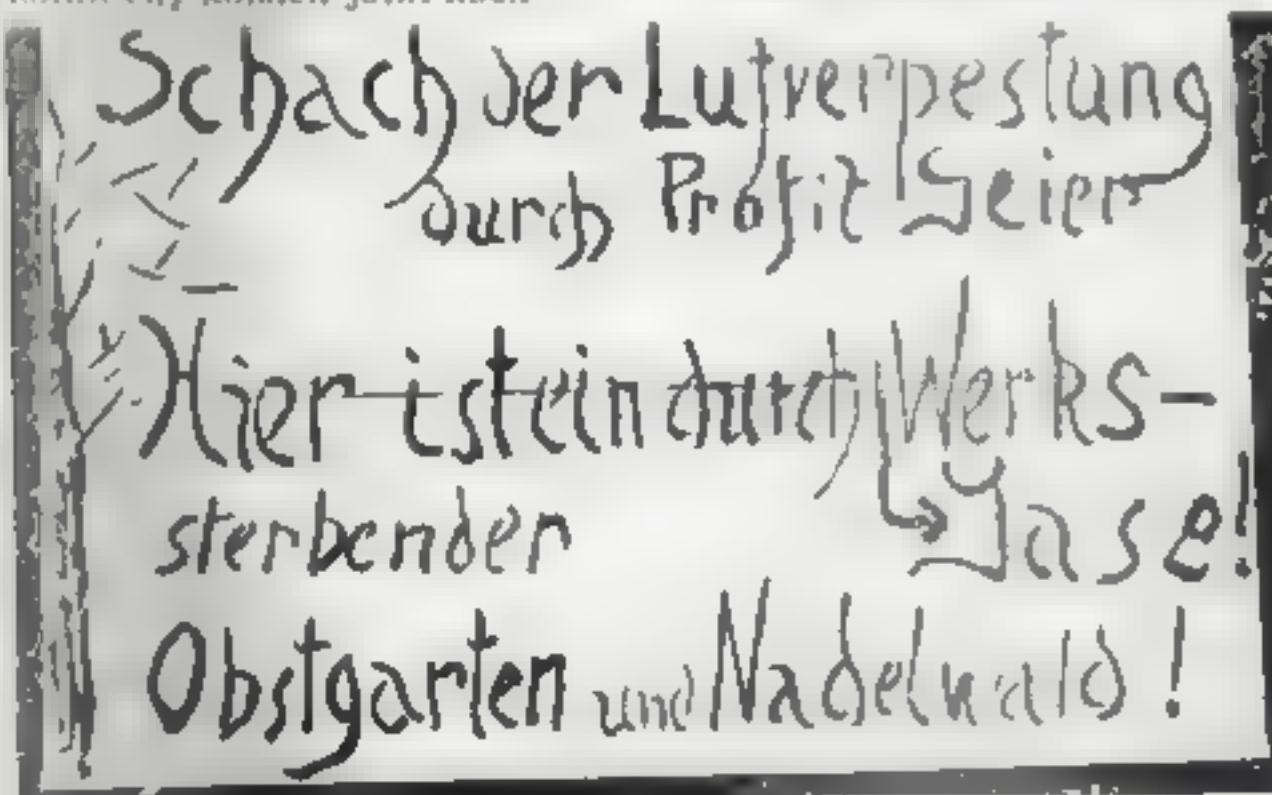 Schach der Lufverpestung
durch Profit Geier
Hier ist ein durch Werks-
Gase!
sterbender
Obstgarten und Nadelwald!